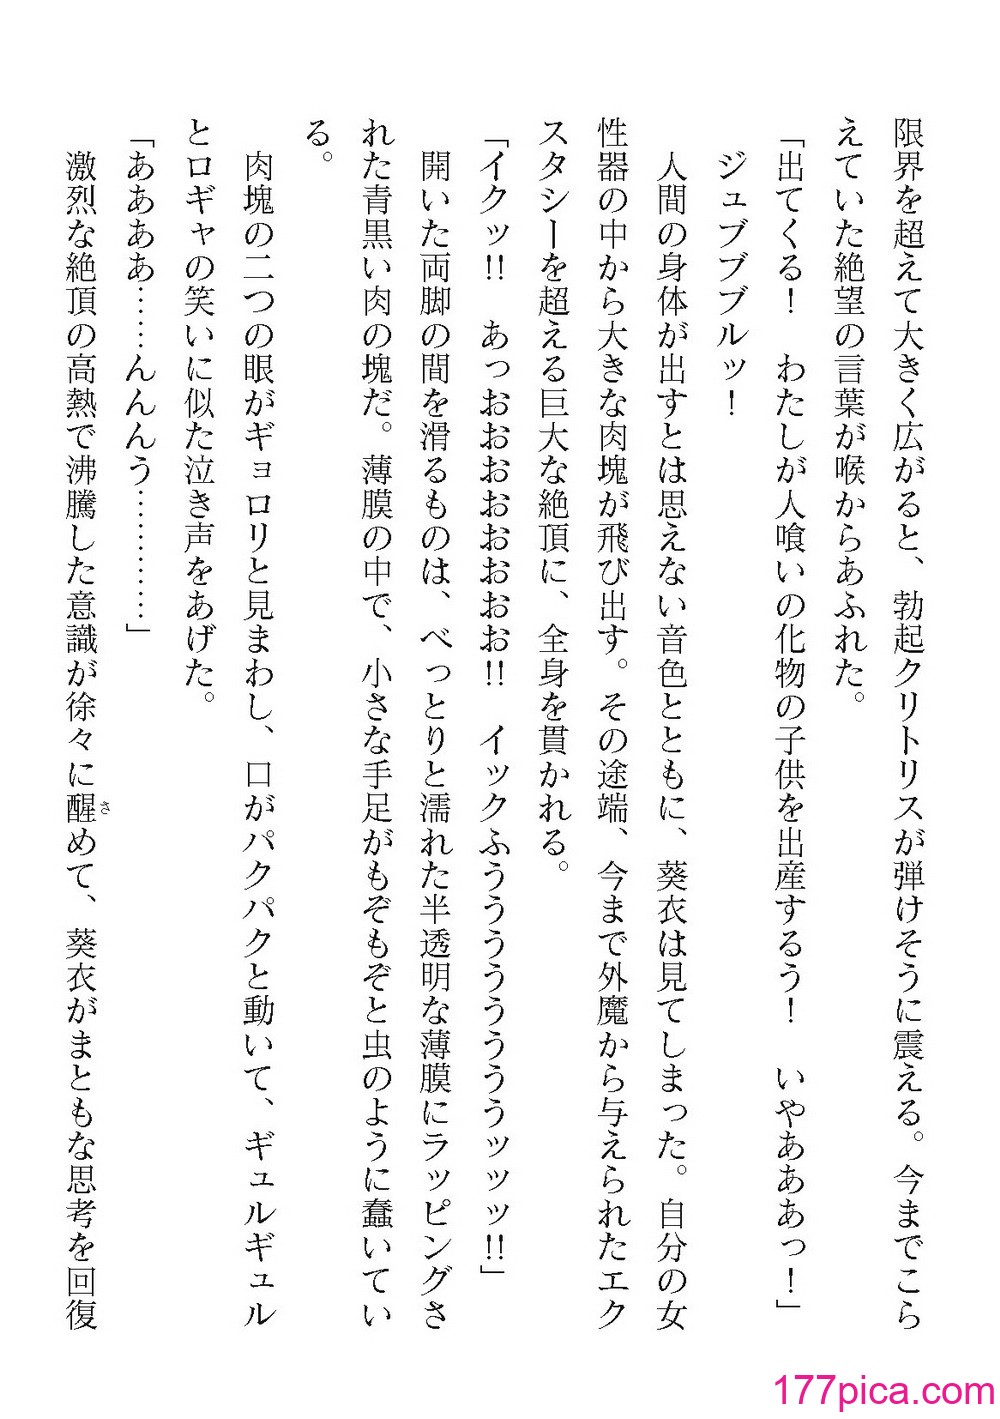 限界を超えて大きく広がると、勃起クリトリスが弾けそうに震える。今までこら
えていた絶望の言葉が喉からあふれた。
「出てくる！　わたしが人喰いの化物の子供を出産するう！　いやあああっ！」
　ジュブブブルッ！
　人間の身体が出すとは思えない音色とともに、葵衣は見てしまった。自分の女
性器の中から大きな肉塊が飛び出す。その途端、今まで外魔から与えられたエク
スタシーを超える巨大な絶頂に、全身を貫かれる。
「イクッ!!　あっおおおおおおおお!!　イックふうううううううううッッッ!!」
　開いた両脚の間を滑るものは、べっとりと濡れた半透明な薄膜にラッピングさ
れた青黒い肉の塊だ。薄膜の中で、小さな手足がもぞもぞと虫のように蠢いてい
る。
　肉塊の二つの眼がギョロリと見まわし、口がパクパクと動いて、ギュルギュル
とロギャの笑いに似た泣き声をあげた。
「ああああ……んんんう…………」
　激烈な絶頂の高熱で沸騰した意識が徐々に醒さめて、葵衣がまともな思考を回復
177pica.com